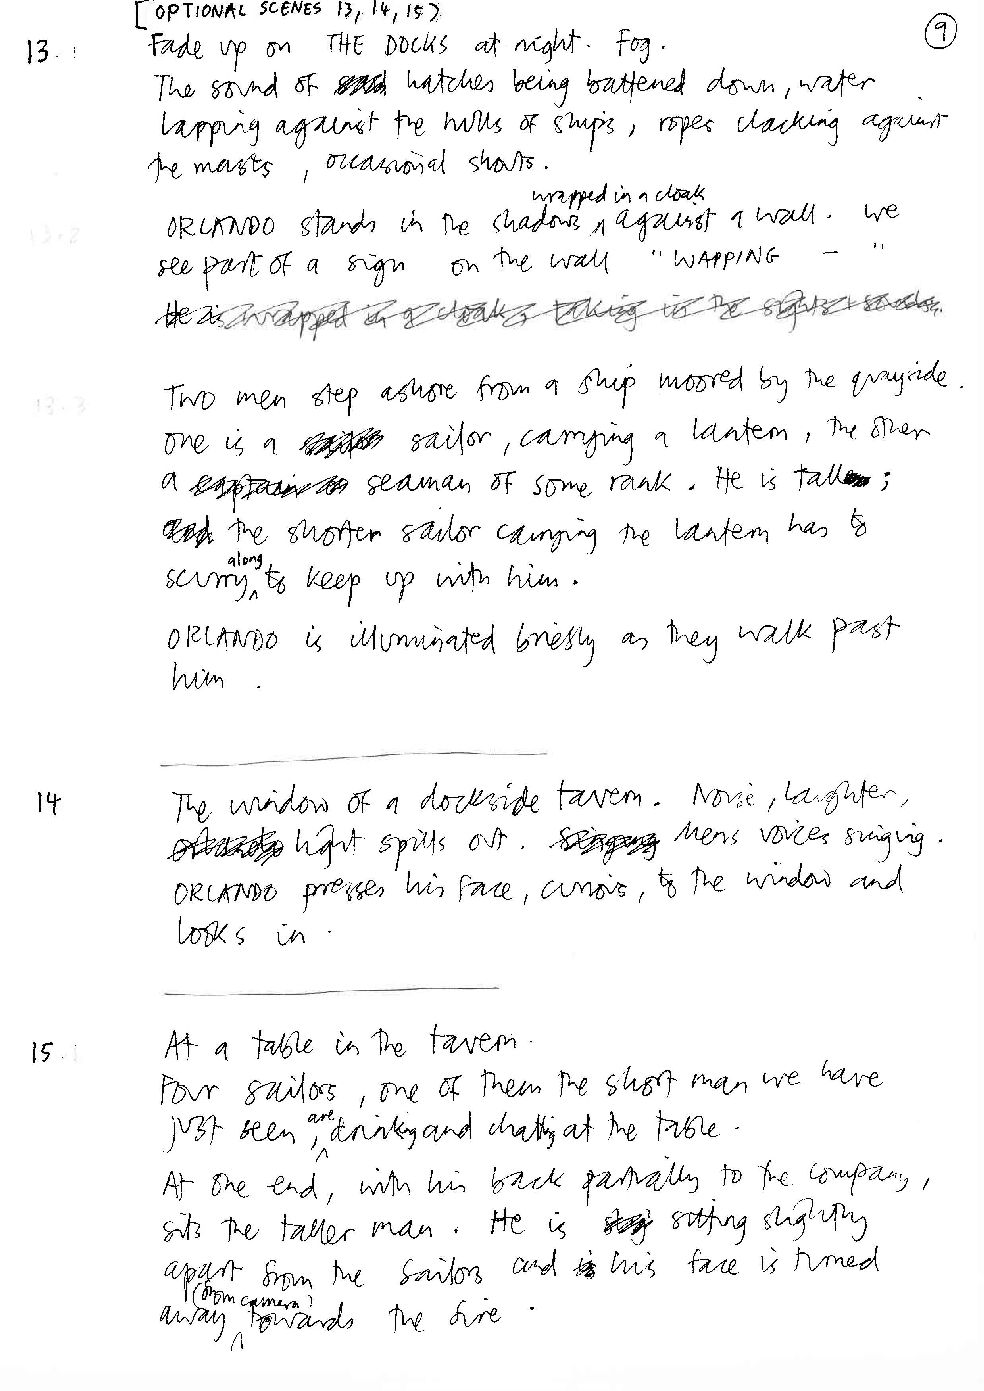 [OPTIONAL SCENES 13, 14, 15]
9
13. Fade up on THE DOCKS at night. Fog.
The sound of hatches being battened down, water
lapping against the hulls of ships, ropes clacking against
the masts, occasional shouts.
wrapped in a cloak
ORLANDO stands in the shadows ^ against a wall. We
13.2
see part of a sign on the wall "WAPPING – "
He is wrapped in a cloak, taking in the sights + sounds.
Two men step ashore from a ship moored by the quayside.
13.3
one is a sailor, carrying a lantern, the other
a captain seaman of some rank. He is tall;
and the shorter sailor carrying the lantern has to
along
scurry ^ to keep up with him.
ORLANDO is illuminated briefly as they walk past
him.
14 The window of a dockside tavern. Noise, laughter,
light spills out. Singing Mens voices singing.
ORLANDO presses his face, curious, to the window and
looks in.
15. At a table in the tavern.
Four sailors, one of them the short man we have
are
just seen, ^ drinking and chatting at the table.
At one end, with his back partially to the company,
sits the taller man. He is sitting slightly
apart from the sailors and is his face is turned
(from camera)
away ^ towards the fire.